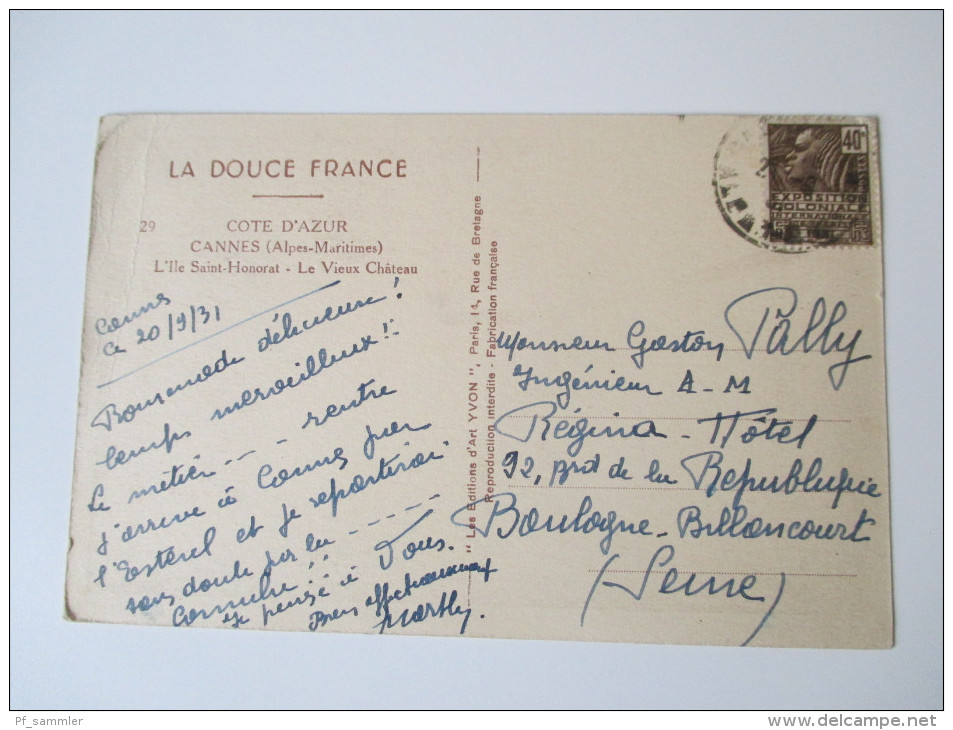 LA DOUCE FRANCE
29 COTE D'AZUR
CANNES (Alpes-Maritimes)
L'Ile Saint-Honorat - Le Vieux Château
Cannes
ce 20/9/31
délicieuse!
temps merveilleux!!
Le métier -- rentre
j'arrive à Cannes par
l'Esterel et je repartirai
sans doute par la -----
Corniche!!
Je pense à Vous.
Bien affectueusement
" Les Editions d'Art YVON ", Paris, 14, Rue de Bretagne
Reproduction interdite - Fabrication française
40c
POSTES
EXPOSITION
COLONIALE
INTERNATIONALE
Monsieur Gaston Pally
Ingénieur A-M
Régina-Hôtel
92, Brd de la Republique
Boulogne-Billancourt
(Seine)
Pf_sammler
www.delcampe.net